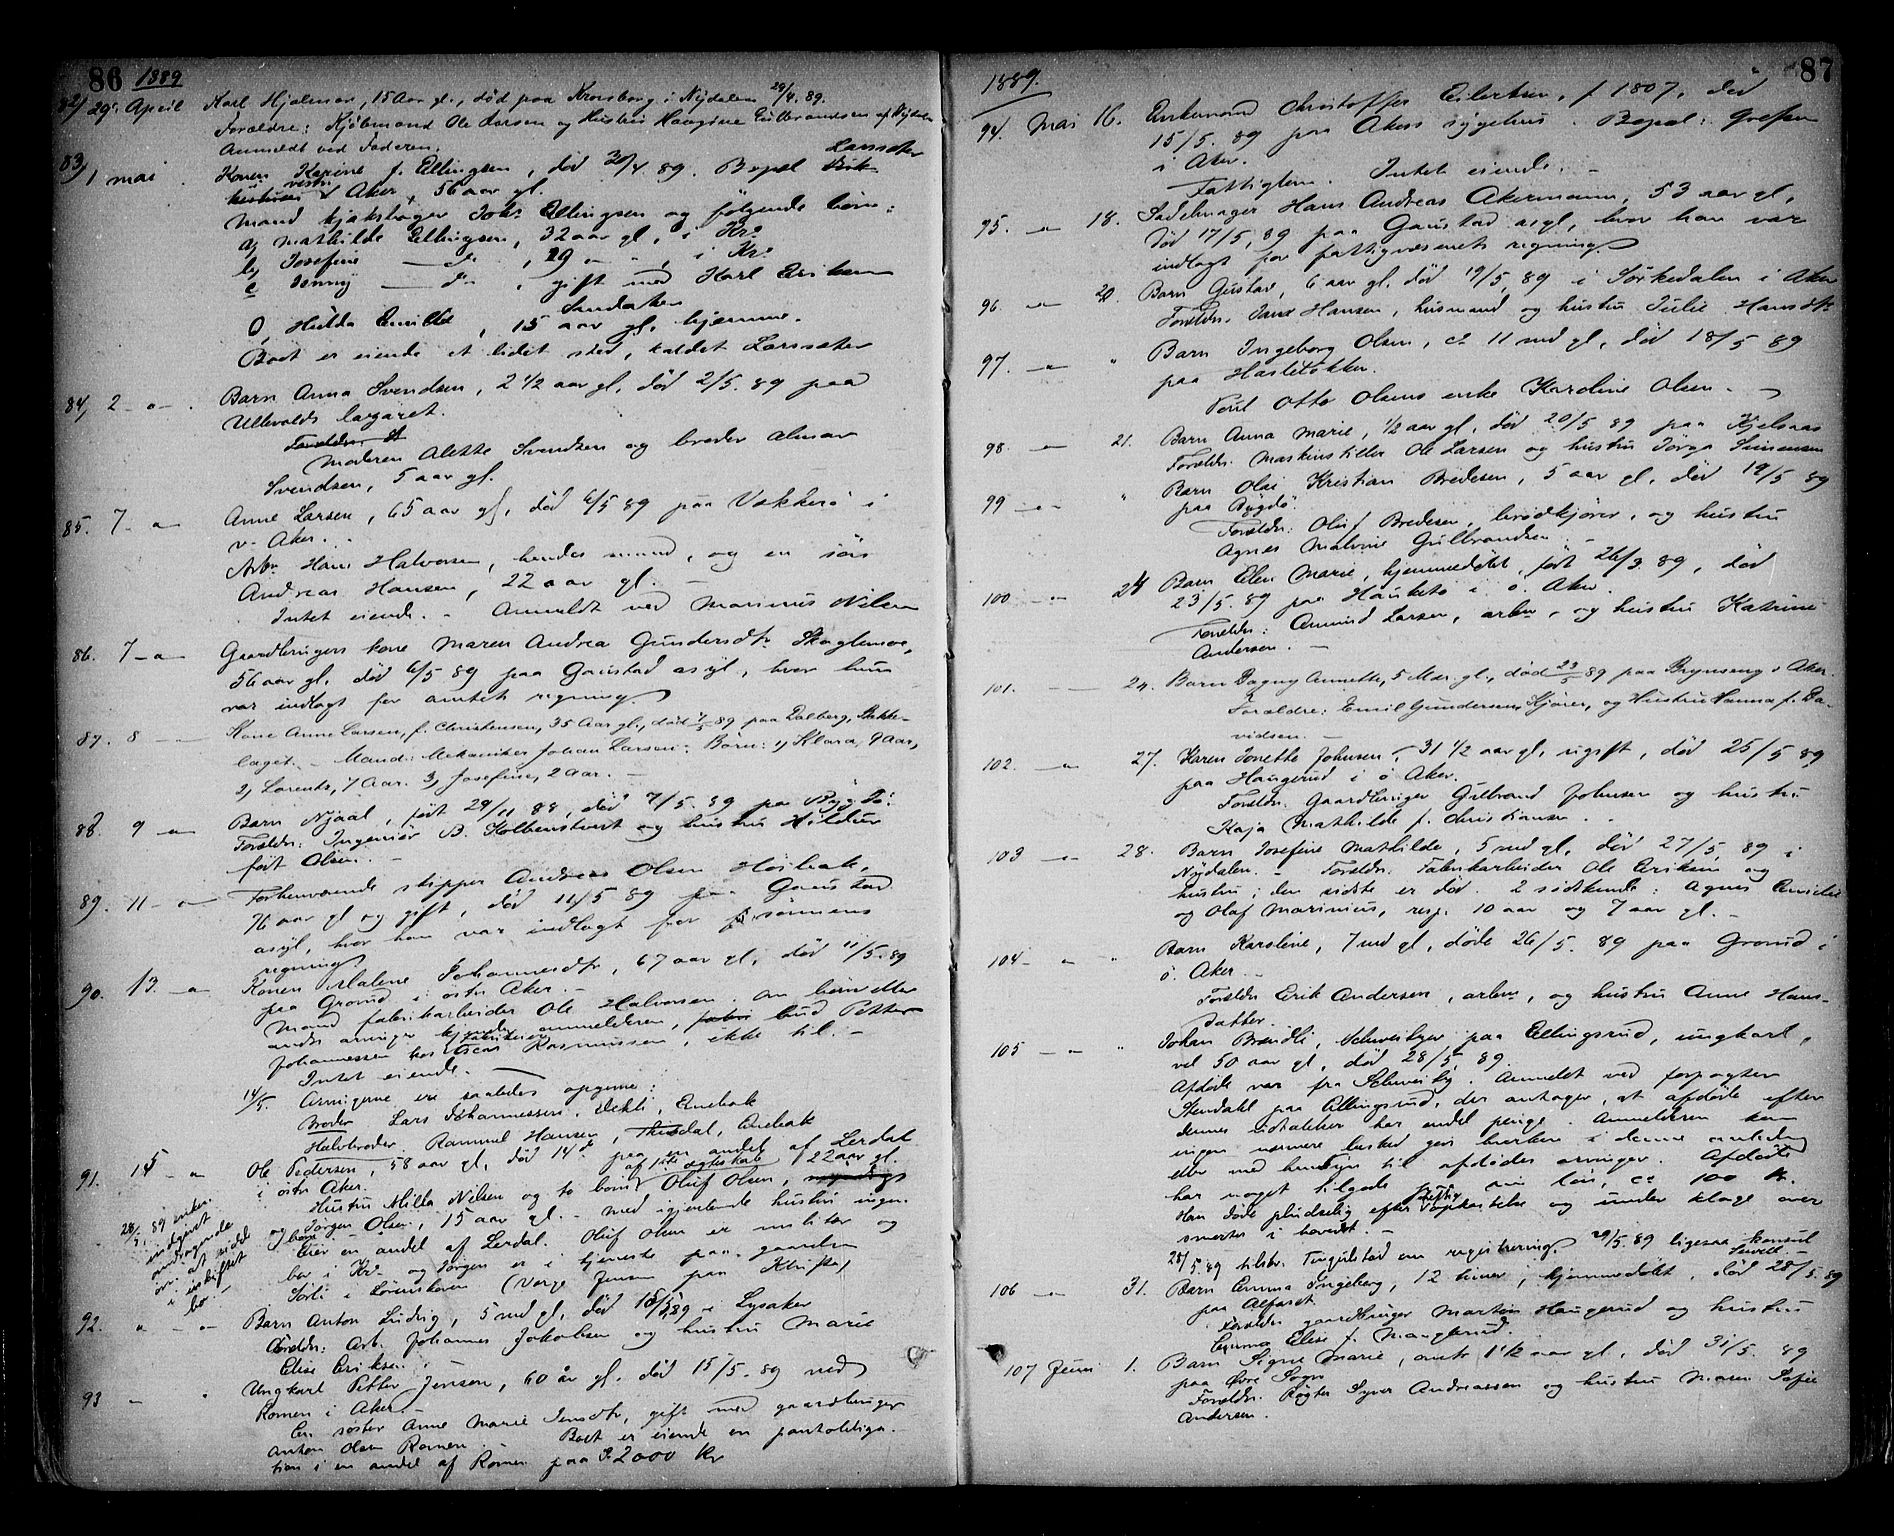 86 1889
82, 29. April Karl Hjalmar, 15 Aar gl., død paa Kronborg i Nydalen 28/4. 89.
Forældre: Kjøbmand Ole Larsen og Hustru Haagine Gulbrandsen af Nydalen
Anmeldt ved Faderen.
83, 1 mai Konen Karine f. Ellingsen, død 30/4 89. Bopæl Larssæter
vestre Aker, 56 aar gl.
Mand Johs Ellingsen og følgende børn:
a, Mathilde Ellingsen, 32 aar gl., i Kra
b, Josefine — do , 29 — „ — , i Kra
c, Jenny — do , gift med Karl Eriksen
Sandaker
d, Hulda Emilie, 15 aar gl. hjemme.
Boet er eiende et lidet sted, kaldet Larssæter
84, 2 — „ — . Barn Anna Svendsen, 2 1/2 aar gl, død 2/5. 89 paa
Ullevolds lazaret.
Moderen Alette Svendsen og broder Almar
Svendsen, 5 aar gl.
85. 7 — „ — Anne Larsen, 65 aar gl, død 6/5 89 paa Vækkerø i
v. Aker.
Arbr. Hans Halvorsen, hendes mand, og en søn
Andreas Hansen, 22 aar gl. —
Intet eiende. — Anmeldt ved Marinus Nilsen
86. 7 — „ — Gaardbrugers kone Maren Andrea Gundersdtr Skoglunds,
56 aar gl. død 6/5 89 paa Gaustad asyl, hvor hun
var indlagt for amtets regning.
87. 8 — Kone Anne Larsen, f. Christensen, 35 Aar gl., død 7/5 89 paa Dalberg, Bække-
laget. — Mand: Mekaniker Johan Larsen. Børn: 1, Klara, 9 Aar,
2, Lorentz, 7 Aar. 3, Josefine, 2 Aar. —
88. 9 — „ — Barn Njaal, født 29/11 88, død 7/5. 89 pa Bygdø.
Forældr: Ingeniør B. Kolbenstvedt og hustru Hildur
født Olsen. —
89. 11 — „ — Forhenværende skipper Andreas Olsen Høibak,
76 aar gl og gift, død 11/5 89 paa Gaustad
asyl, hvor han var indlagt for sønnens
regning
90. 13. — „ Konen Malene Johannesdtr, 67 aar gl, død 11/5. 89
paa Grorud i østre Aker. —
Mand fabrikarbeider Ole Halvorsen. Om børn eller
andre arvinger kjender anmelderen, bud Petter
Johannessen hos Fabrikeier Oscar Rasmussen, ikke til. —
Intet eiende. —
14/5. Arvingerne er saaledes opgivne:
Broder Lars Johannessen, Enebak
Halvbroder Rammel Hansen, Enebak
91. 15 — „ Ole Pedersen, 58 aar gl, død 14ds paa en andel af Lerdal
i østre Aker. af 1ste ægteskab
Hustru Milla Nilsen og to børn Oluf Olsen, 22 aar gl.
og Jørgen Olsen, 15 aar gl. — Med igjenlevende hustru ingen
børn —
Eier en andel af Lerdal. Oluf Olsen er militær og
bor i Kra og Jørgen er i tjeneste paa gaarden
Sørli i Lørenskoven (Værge Jensen paa Kl
28/5. 89 enken
indgivet
andragende
om at sidde
i uskiftet
bo. —
92. „ — „ Barn Anton Ludvig, 5 md gl, død 15/5. 89 i Lysaker
Foreldr: Arb. Johannes Jakobsen og hustru Marie
Elise Eriksen. —
93 — „ Ungkarl Petter Jensen, 60 år gl. død 15/5. 89 ved
Romen i Aker. —
En søster Anne Marie Jensdtr, gift med gaardbruger
Anton Olsen Romen. — Boet er eiende en pantobliga-
tion i en andel af Romen paa 2000 Kr
1889. 87
94. Mai 16. Enkemand Christoffer Eilertsen, f 1807, død
15/5. 89 paa Akers sygehus. Bopæl: Grefsen
i Aker.
Fattiglem. Intet eiende. —
95. — „ 18. Sadelmager Hans Andreas Akermann, 53 aar gl,
død 17/5, 89 paa Gaustad asyl, hvor han var
indlagt for fattigvæsenets regning.
96 — „ 20. Barn Gustav, 6 aar gl. død 19/5, 89 i Sørkedalen i Aker
Foreldr. Hansen, husmand og hustru Julie Hansdtr
97. — „ „ Barn Ingeborg Olsen, ca 11 md gl, død 18/5 89
paa
Otto Olsens enke Karoline Olsen. —
98 — „ 21. Barn Anna Marie, 1/2 aar gl, død 20/5 89 paa Kjelsaas
Foreldr. Maskinstiller Ole Larsen og hustru Jørga Simensen
99 — „ — „ Barn Olai Kristian Bredesen, 5 aar gl, død 19/5 89
paa Bygdø.
Foreldr: Oluf Bredesen, brødkjører, og hustru
Agnes Malvine Gulbrandsen. —
100 — „ 24 Barn Elen Marie, hjemmedøbt, født 26/3. 89, død
23/5. 89 paa Hauketo i ø. Aker.
Foreldr: Amund Larsen, arbm, og hustru Katrine
Andersen. —
101. — — 24. Barn Dagny Annette, 5 Mdr. gl., død 23/5 89 paa Brynseng i Aker.
Forældre: Emil Gundersen, Kjører, og Hustru Hanna f. Da-
vidsen. —
102. — „ 27. Karen Jonette Johnsen, 31 1/2 aar gl, ugift, død 25/5 89
paa Haugerud i ø Aker.
Foreldr. Gaardbruger Gulbrand Johnsen og hustru
Kaja Mathilde f. Christiansen. —
103 — „ 28. Barn Josefine Mathilde, 5 md gl, død 27/5, 89 i
Nydalen. — Foreldr. Fabrikarbeider Ole Eriksen og
hustru; den sidste er død. 2 sødskende: Agnes Emilie
og Olaf Marinius, resp. 10 aar og 7 aar gl. —
104 — „ „ Barn Karoline, 7 md gl, døde 26/5. 89 paa Grorud i
ø. Aker. —
Foreldr. Erik Andersen, arbm, og hustru Anne Hans-
datter.
105 — „ „ Johan Brændli, Schweitzer paa Ellingsrud, ungkarl,
vel 50 aar gl, død 28/5, 89.
Afdøde var fra Schweitz. Anmeldt ved forpagter
Stendahl paa Ellingsrud, der antager, at afdøde efter
dennes udtalelser har endel penge. Anmelderen kan
ingen nærmere besked give hverken i denne anledning
eller med hensyn til afdødes arvinger. Afdøde
har noget tilgode af sin løn, ca 100 Kr.
Han døde pludselig efter heftig opkastelse og under klage over
smerter i hovedet. —
28/5 89 tilskr. Tingulstad om registrering. 29/5. 89 ligesaa konsul
106 — „ 31. Barn Emma Ingeborg, 12 timer, hjemmedøbt, død 28/5. 89
paa Alfaset.
Foreldr. gaardbruger Martin Haugerud og hustru
Emma Elise f. Manglerud.
107 Juni 1. Barn Signe Marie, omtr 1 1/2 aar gl, død 31/5. 89
paa Øvre Sogn
Foreldr. Røgter Syver Andreassen og hustru Maren Sofie
Andersen.